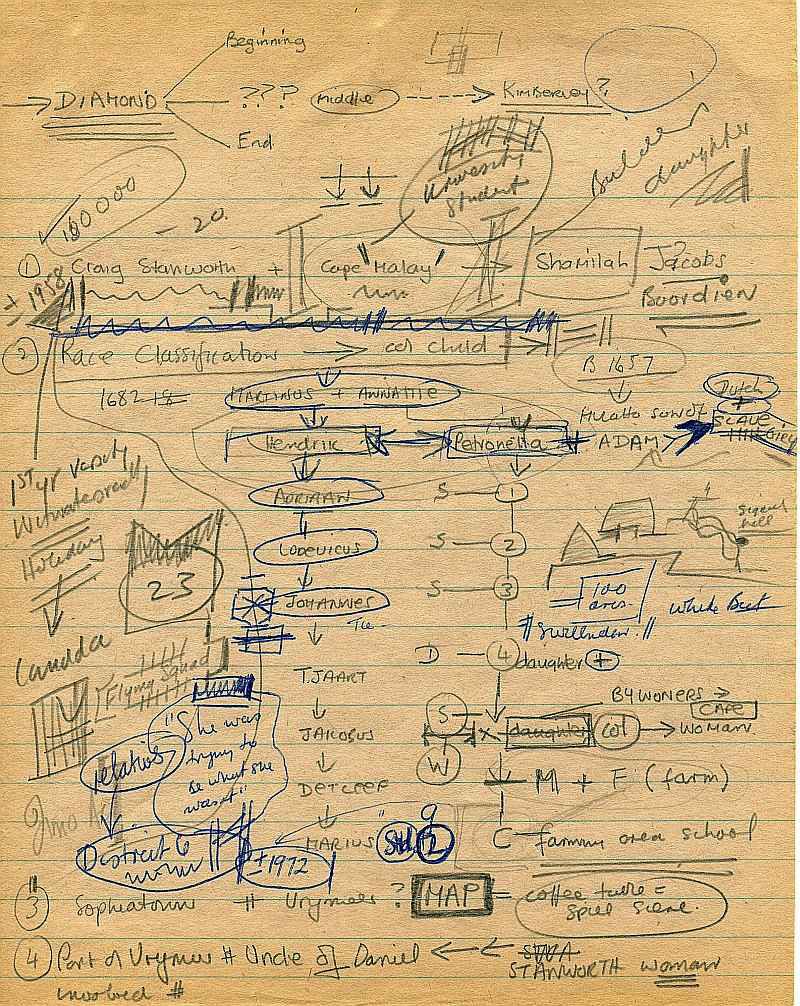 Beginning
DIAMOND ??? Middle KIMBERLEY ?
End
Builders
daughter
University
Student
100000
- 20.
1 Craig Stanworth + Cape "Malay" Shamilah Jacobs
Boordien
± 1958
2 Race Classification → col child
B 1657
1682
MARTINUS + ANNATJIE
Mulatto son of
ADAM
Dutch
+
SLAVE
Hendrik Petronella
1st yr varsity
Witwatersrand
Holiday
ADRIAAN S 1
LODEVICUS S 2
Signal
hill
23
JOHANNES S 3
100
acres.
White But
Swellendam
D 4 daughter +
Flying Squad
TJAART
BYWONERS →
CAPE
"She was
trying to
be what she
wasn't"
relatives
JAKOBUS
S
W
x daughter col → WOMAN
DETLEEF
M + F (farm)
MARIUS Std. 2
C farming area school
District 6
± 1972
3 Sophiatown # Vrymeer ? MAP = coffee table =
4 Part of Vrymeer # Uncle of Daniel ← ← SWA
STANWORTH woman
involved #